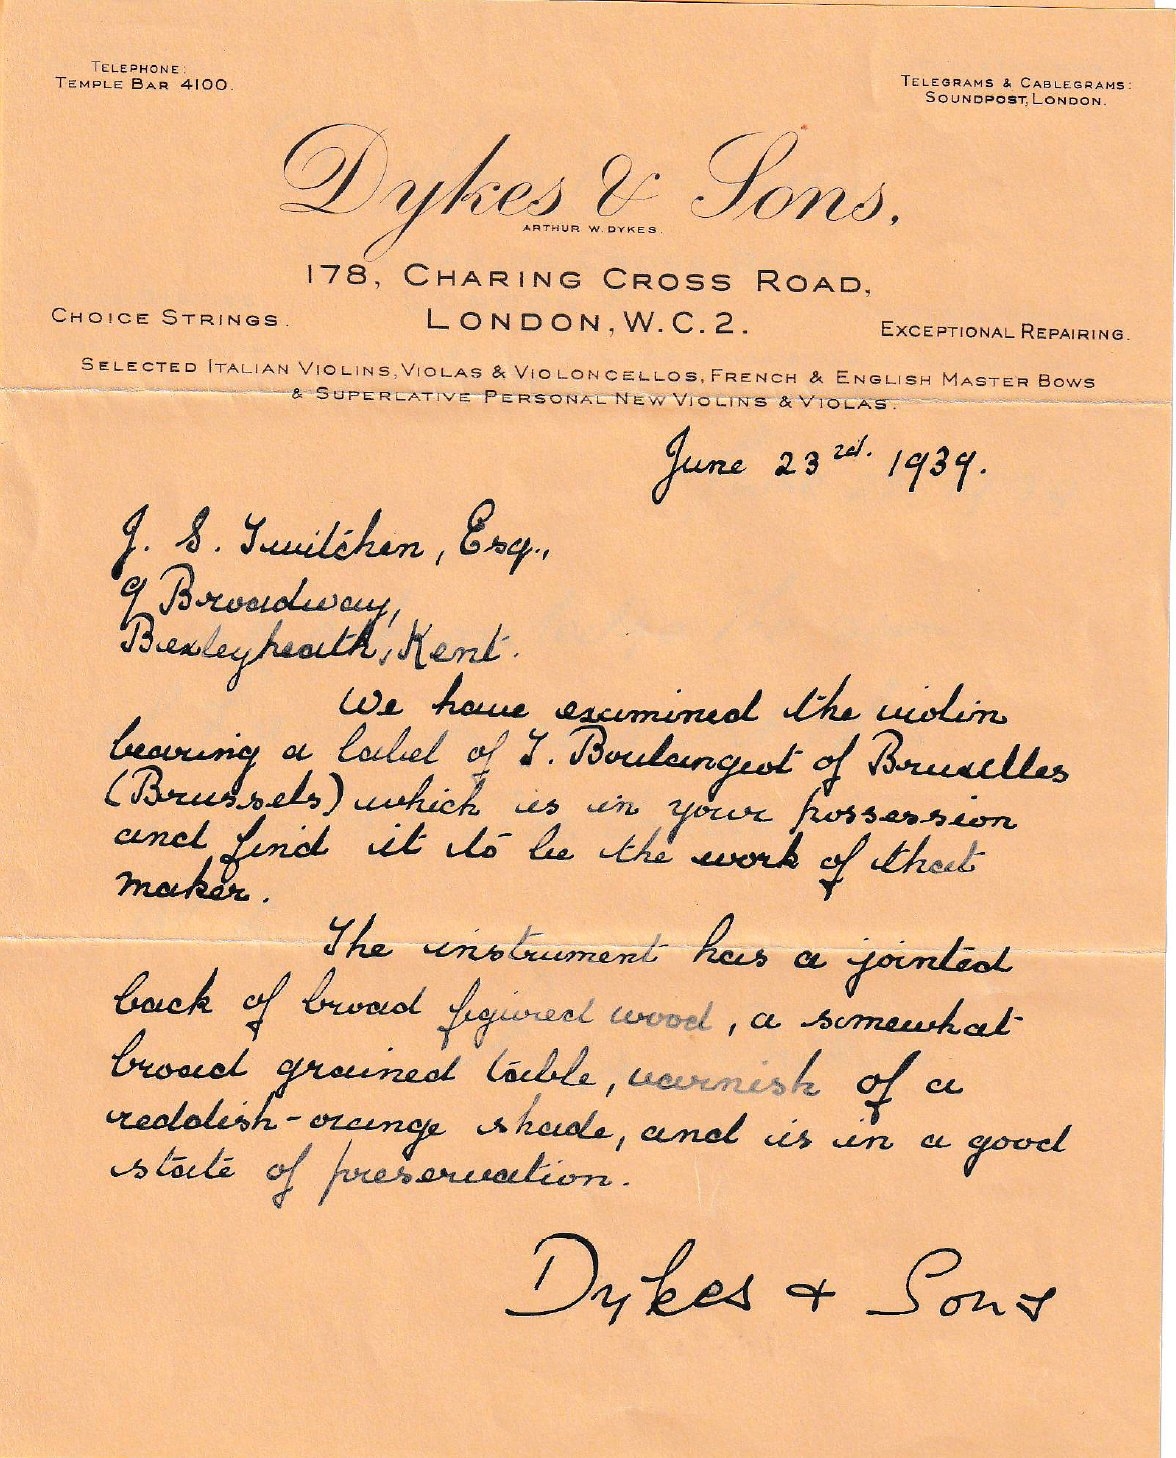 TELEPHONE:
TEMPLE BAR 4100.
TELEGRAMS & CABLEGRAMS:
SOUNDPOST, LONDON.
Dykes & Sons,
ARTHUR W. DYKES.
178, CHARING CROSS ROAD,
LONDON, W.C.2.
CHOICE STRINGS.
EXCEPTIONAL REPAIRING.
SELECTED ITALIAN VIOLINS, VIOLAS & VIOLONCELLOS, FRENCH & ENGLISH MASTER BOWS
& SUPERLATIVE PERSONAL NEW VIOLINS & VIOLAS.
June 23rd. 1939.
J. S. Twitchen, Esq.,
9 Broadway,
Bexleyheath, Kent.
We have examined the violin
bearing a label of T. Boulangeot of Bruxelles
(Brussels) which is in your possession
and find it to be the work of that
maker.
The instrument has a jointed
back of broad figured wood, a somewhat
broad grained table, varnish of a
reddish-orange shade, and is in a good
state of preservation.
Dykes & Sons